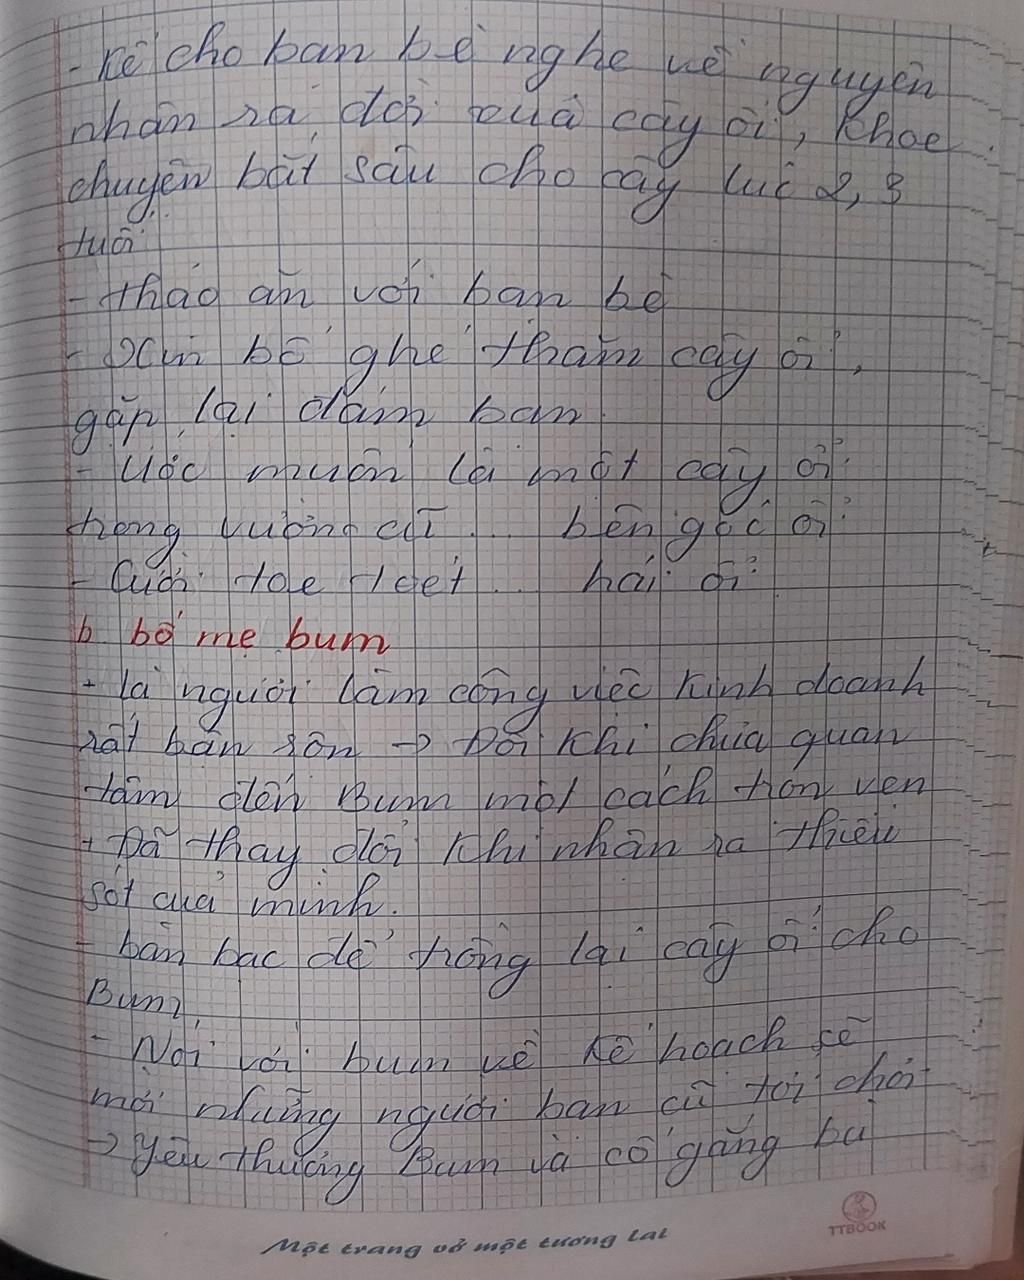 - Kể cho bạn bè nghe về nguyên
nhân ra đời quả cây ổi, khoe
chuyện bắt sâu cho cây lúc 2, 3
tuổi
- tháo ăn với bạn bè
- Xin bố ghé thăm cây ổi,
gặp lại đám bạn
- Ước muốn là một cây ổi
trong vườn cũ ... bên gốc ổi
- Cười toe toét ... hái ổi
b bố mẹ bum
+ là người làm công việc kinh doanh
rất bận rộn → Đôi khi chưa quan
tâm đến Bum một cách trọn vẹn
+ Đã thay đổi khi nhận ra thiếu
sót của mình.
- bàn bạc để trồng lại cây ổi cho
Bum.
- Nói với bum về kế hoạch sẽ
mời những người bạn cũ tới chơi
→ yêu thương Bum và cố gắng bù
Một trang vở một tương lai
TTBOOK